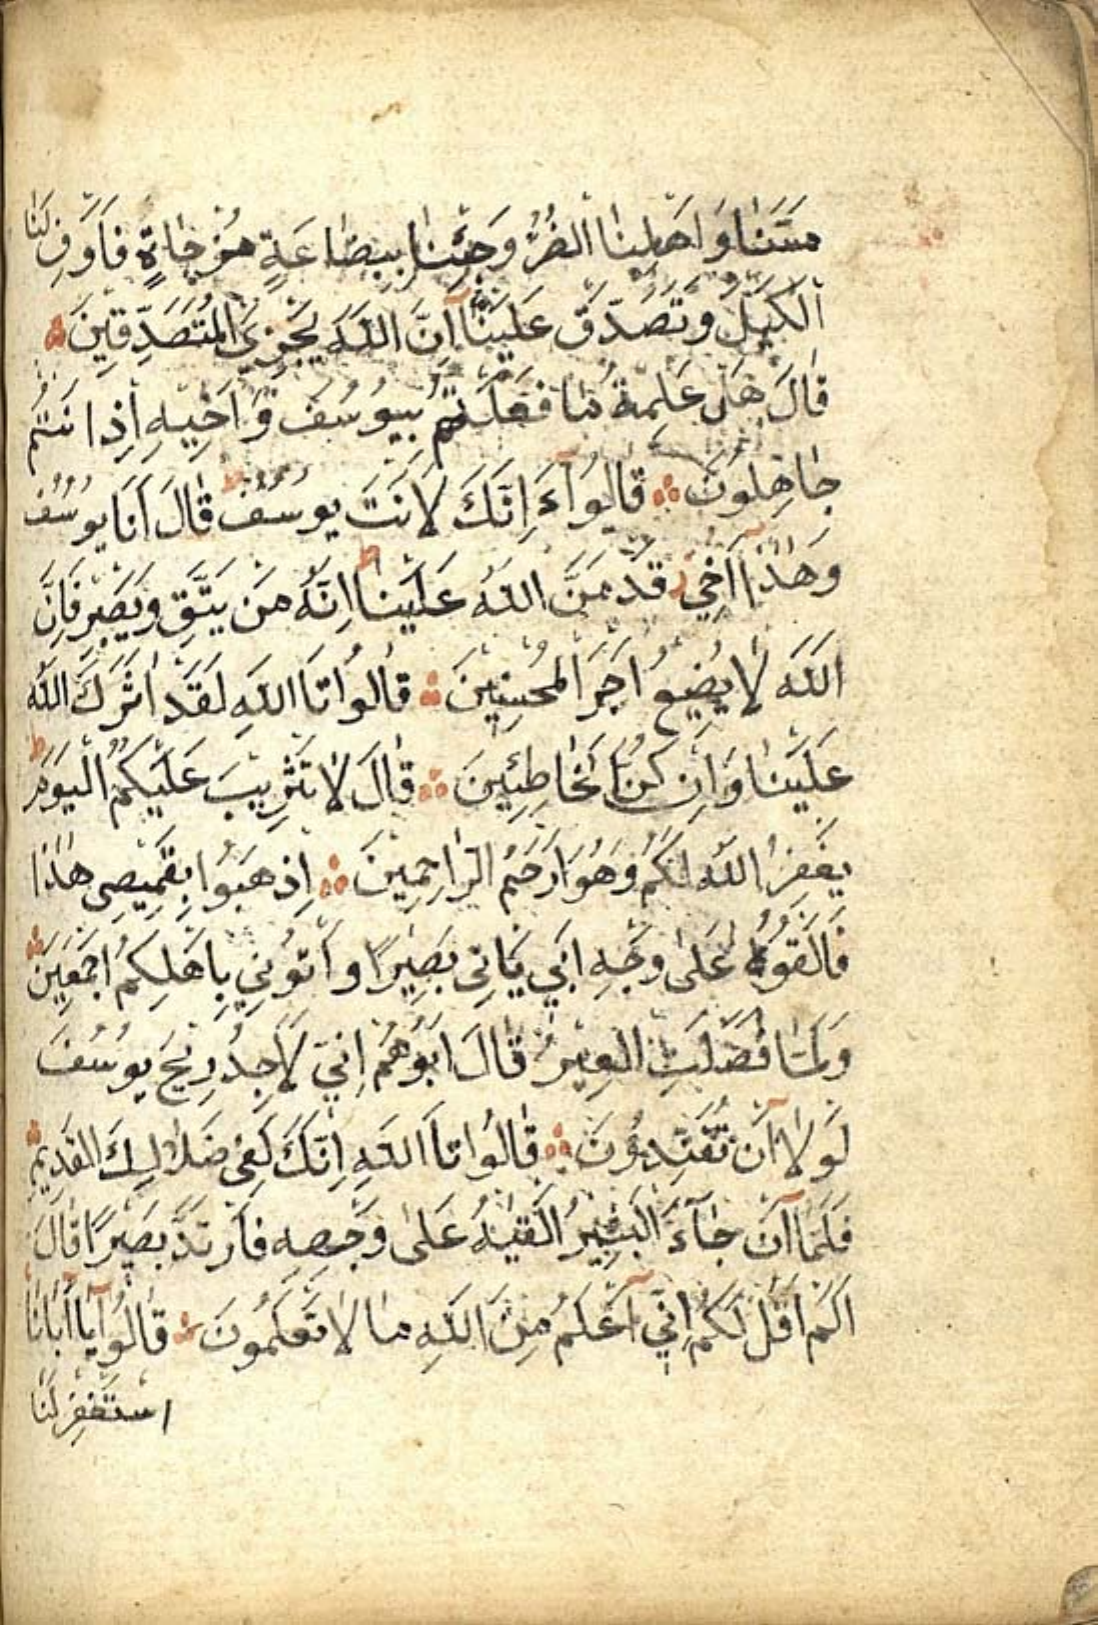 مَسَّنَا وَاَهْلَنَا الضُّرُّ وَجِئْنَا بِبِضَاعَةٍ مُزْجَاةٍ فَاَوْفِ لَنَا
الْكَيْلَ وَتَصَدَّقْ عَلَيْنَا اِنَّ اللّٰهَ يَجْزِي الْمُتَصَدِّقِينَ
قَالَ هَلْ عَلِمْتُمْ مَا فَعَلْتُمْ بِيُوسُفَ وَاَخِيهِ اِذْ اَنْتُمْ
جَاهِلُونَ قَالُوا ءَاِنَّكَ لَاَنْتَ يُوسُفُ قَالَ اَنَا يُوسُفُ
وَهٰذَا اَخِي قَدْ مَنَّ اللّٰهُ عَلَيْنَا اِنَّهُ مَنْ يَتَّقِ وَيَصْبِرْ فَاِنَّ
اللّٰهَ لَا يُضِيعُ اَجْرَ الْمُحْسِنِينَ قَالُوا تَا اللّٰهِ لَقَدْ اٰثَرَكَ اللّٰهُ
عَلَيْنَا وَاِنْ كُنَّا لَخَاطِئِينَ قَالَ لَا تَثْرِيبَ عَلَيْكُمُ الْيَوْمَ
يَغْفِرُ اللّٰهُ لَكُمْ وَهُوَ اَرْحَمُ الرَّاحِمِينَ اِذْهَبُوا بِقَمِيصِي هٰذَا
فَاَلْقُوهُ عَلٰى وَجْهِ اَبِي يَاْتِ بَصِيرًا وَأْتُونِي بِاَهْلِكُمْ اَجْمَعِينَ
وَلَمَّا فَصَلَتِ الْعِيرُ قَالَ اَبُوهُمْ اِنِّي لَاَجِدُ رِيحَ يُوسُفَ
لَوْلَا اَنْ تُفَنِّدُونَ قَالُوا تَا اللّٰهِ اِنَّكَ لَفِي ضَلَالِكَ الْقَدِيمِ
فَلَمَّا اَنْ جَاءَ الْبَشِيرُ اَلْقَيٰهُ عَلٰى وَجْهِهِ فَارْتَدَّ بَصِيرًا قَالَ
اَلَمْ اَقُلْ لَكُمْ اِنِّي اَعْلَمُ مِنَ اللّٰهِ مَا لَا تَعْلَمُونَ قَالُوا يَا اَبَانَا
اسْتَغْفِرْ لَنَا